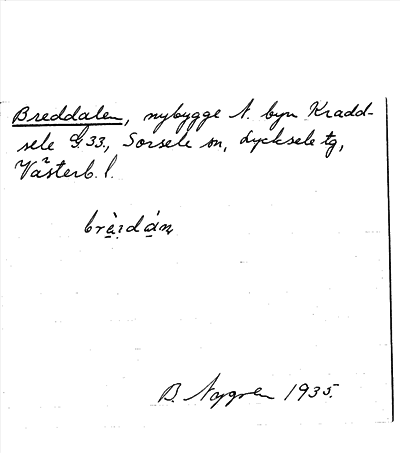 Breddalen, nybygge t. byn Kradd-
sele G 33., Sorsele sn, Lycksele tg,
Västerb. l.
brè̱꞉dá̱n
B. Nygren 1935.